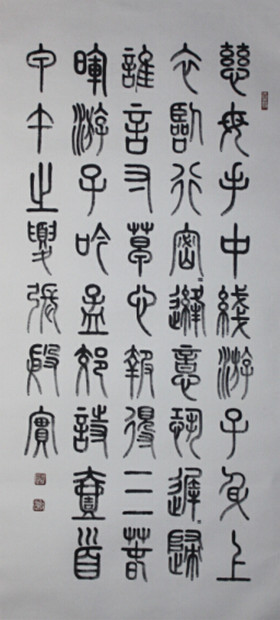 慈母手中綫游子身上
衣臨行密縫意恐遲歸
誰言寸草心報得三春
暉游子吟孟郊詩壹首
甲午之夏張殷實